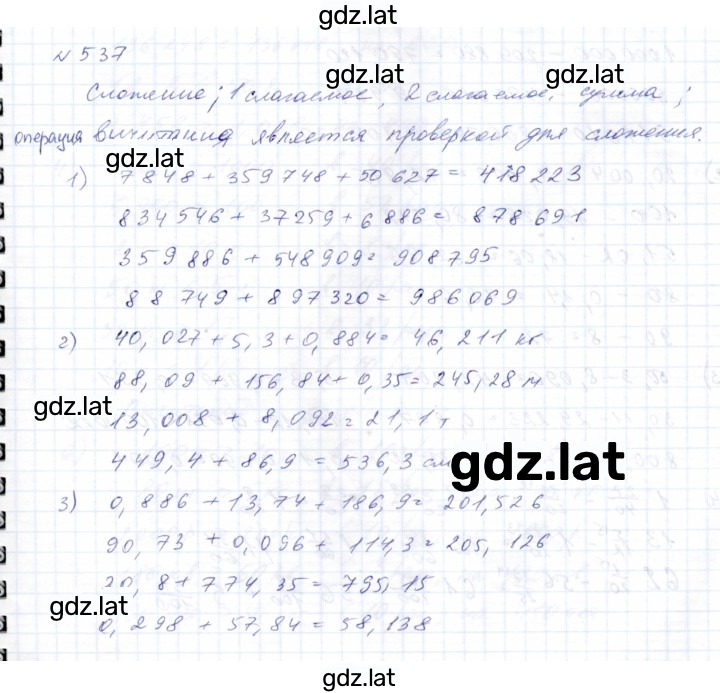 gdz.lat
N 537
gdz.lat gdz.lat
Сложение; 1 слагаемое, 2 слагаемое, сумма;
операция вычитания является проверкой для сложения.
gdz.lat
1) 7848 + 359748 + 50627 = 418223
834546 + 37259 + 6886 = 878691
359886 + 548909 = 908795
88749 + 897320 = 986069
2) 40,027 + 5,3 + 0,884 = 46,211 кг
88,09 + 156,84 + 0,35 = 245,28 м
gdz.lat
13,008 + 8,092 = 21,1 т
449,4 + 86,9 = 536,3 см
gdz.lat
3) 0,886 + 13,74 + 186,9 = 201,526
90,73 + 0,096 + 114,3 = 205,126
20,8 + 774,35 = 795,15
gdz.lat
0,298 + 57,84 = 58,138
gdz.lat